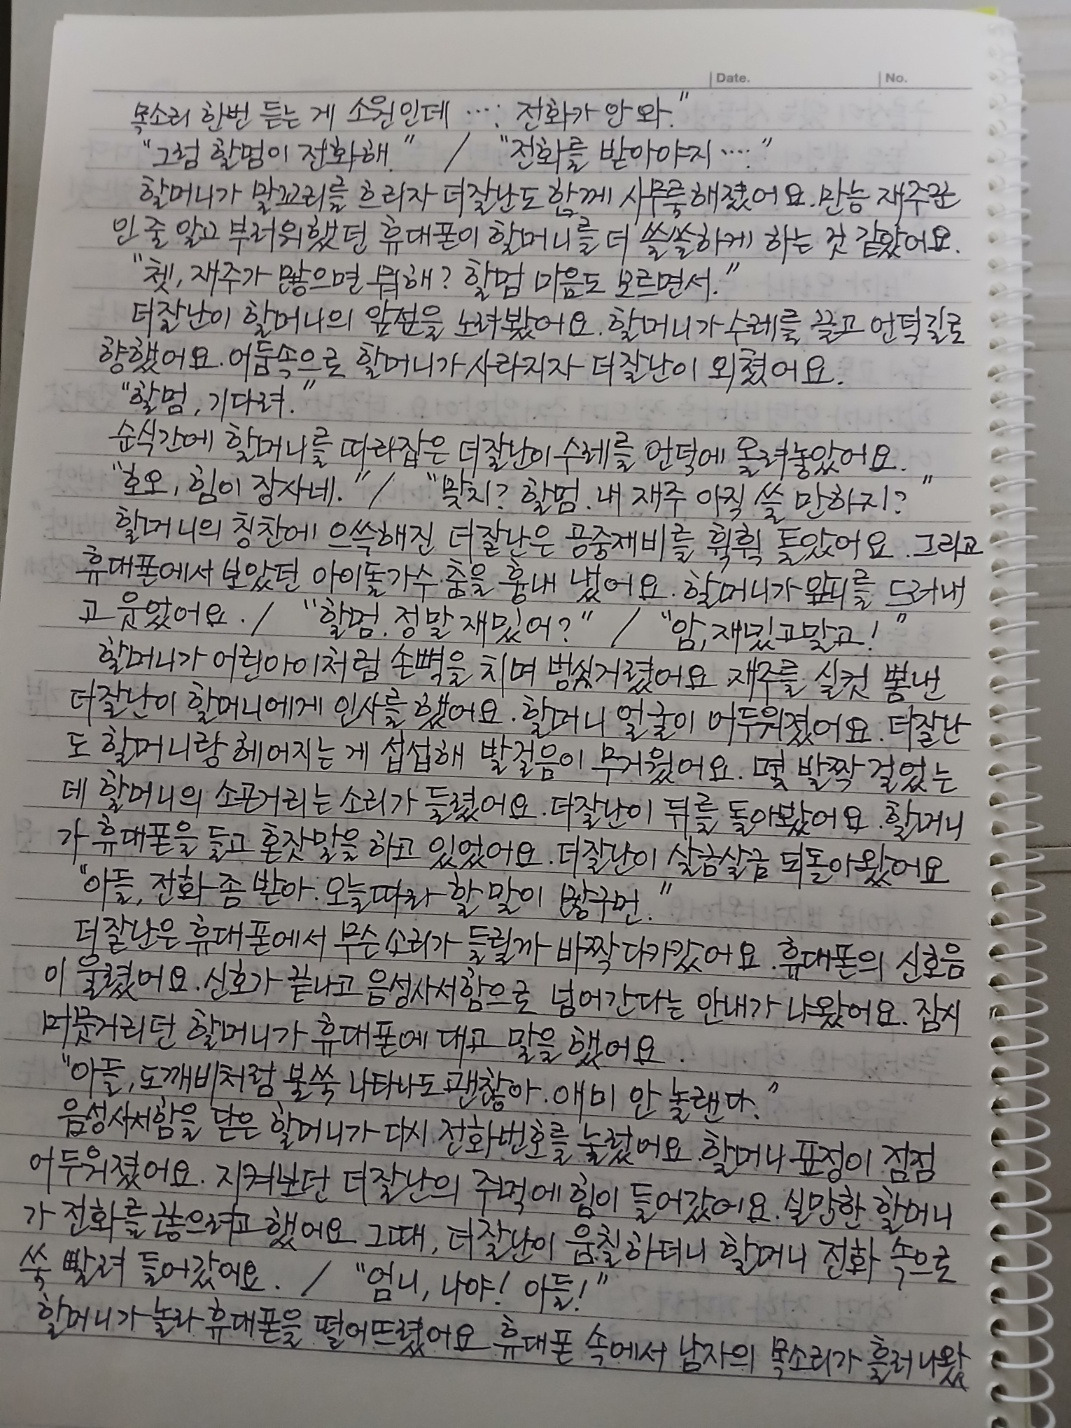 Date.
No.
목소리 한번 듣는 게 소원인데 …. 전화가 안 와."
"그럼 할멈이 전화해." / "전화를 받아야지 …."
할머니가 말꼬리를 흐리자 더잘난도 함께 시무룩해졌어요. 만능 재주꾼
인 줄 알고 부러워했던 휴대폰이 할머니를 더 쓸쓸하게 하는 것 같았어요.
"쳇, 재주가 많으면 뭐해? 할멈 마음도 모르면서."
더잘난이 할머니의 앞섶을 노려봤어요. 할머니가 수레를 끌고 언덕길로
향했어요. 어둠속으로 할머니가 사라지자 더잘난이 외쳤어요.
"할멈, 기다려."
순식간에 할머니를 따라잡은 더잘난이 수레를 언덕에 올려놓았어요.
"호오, 힘이 장사네." / "맞지? 할멈. 내 재주 아직 쓸 만하지?"
할머니의 칭찬에 으쓱해진 더잘난은 공중제비를 휙휙 돌았어요. 그리고
휴대폰에서 보았던 아이돌가수 춤을 흉내 냈어요. 할머니가 앞니를 드러내
고 웃었어요. / "할멈. 정말 재밌어?" / "암, 재밌고말고!"
할머니가 어린아이처럼 손뼉을 치며 벙싯거렸어요. 재주를 실컷 뽐낸
더잘난이 할머니에게 인사를 했어요. 할머니 얼굴이 어두워졌어요. 더잘난
도 할머니랑 헤어지는 게 섭섭해 발걸음이 무거웠어요. 몇 발짝 걸었는
데 할머니의 소곤거리는 소리가 들렸어요. 더잘난이 뒤를 돌아봤어요. 할머니
가 휴대폰을 들고 혼잣말을 하고 있었어요. 더잘난이 살금살금 되돌아왔어요
"아들, 전화 좀 받아. 오늘따라 할 말이 많구먼."
더잘난은 휴대폰에서 무슨 소리가 들릴까 바짝 다가갔어요. 휴대폰의 신호음
이 울렸어요. 신호가 끝나고 음성사서함으로 넘어간다는 안내가 나왔어요. 잠시
머뭇거리던 할머니가 휴대폰에 대고 말을 했어요.
"아들, 도깨비처럼 불쑥 나타나도 괜찮아. 애미 안 놀랜다."
음성사서함을 닫은 할머니가 다시 전화번호를 눌렀어요. 할머니 표정이 점점
어두워졌어요. 지켜보던 더잘난의 주먹에 힘이 들어갔어요. 실망한 할머니
가 전화를 끊으려고 했어요. 그때, 더잘난이 움칠하더니 할머니 전화 속으로
쑥 빨려 들어갔어요. / "엄니, 나야! 아들!"
할머니가 놀라 휴대폰을 떨어뜨렸어요. 휴대폰 속에서 남자의 목소리가 흘러나왔